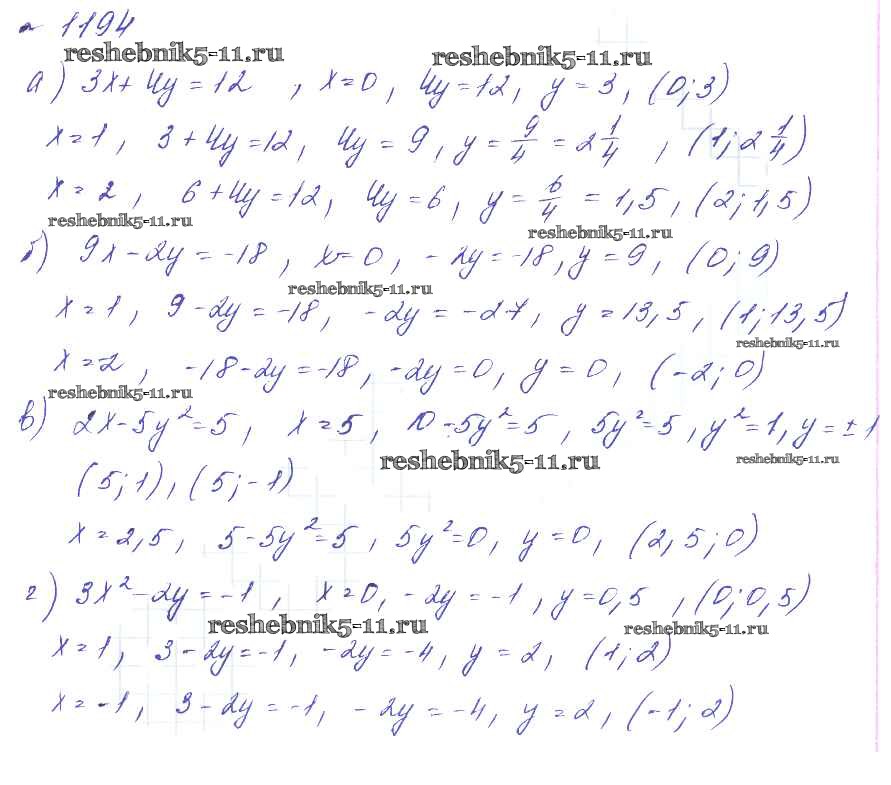 № 1194
reshebnik5-11.ru reshebnik5-11.ru
а) 3x+4y=12, x=0, 4y=12, y=3, (0;3)
x=1, 3+4y=12, 4y=9, y=9/4=2 1/4, (1; 2 1/4)
x=2, 6+4y=12, 4y=6, y=6/4=1,5, (2; 1,5)
reshebnik5-11.ru reshebnik5-11.ru
б) 9x-2y=-18, x=0, -2y=-18, y=9, (0; 9)
reshebnik5-11.ru
x=1, 9-2y=-18, -2y=-27, y=13,5, (1; 13,5)
reshebnik5-11.ru
x=2, -18-2y=-18, -2y=0, y=0, (-2; 0)
reshebnik5-11.ru
в) 2x-5y²=5, x=5, 10-5y²=5, 5y²=5, y²=1, y=±1
reshebnik5-11.ru reshebnik5-11.ru
(5;1), (5;-1)
x=2,5, 5-5y²=5, 5y²=0, y=0, (2,5; 0)
г) 3x²-2y=-1, x=0, -2y=-1, y=0,5, (0; 0,5)
reshebnik5-11.ru reshebnik5-11.ru
x=1, 3-2y=-1, -2y=-4, y=2, (1; 2)
x=-1, 3-2y=-1, -2y=-4, y=2, (-1; 2)